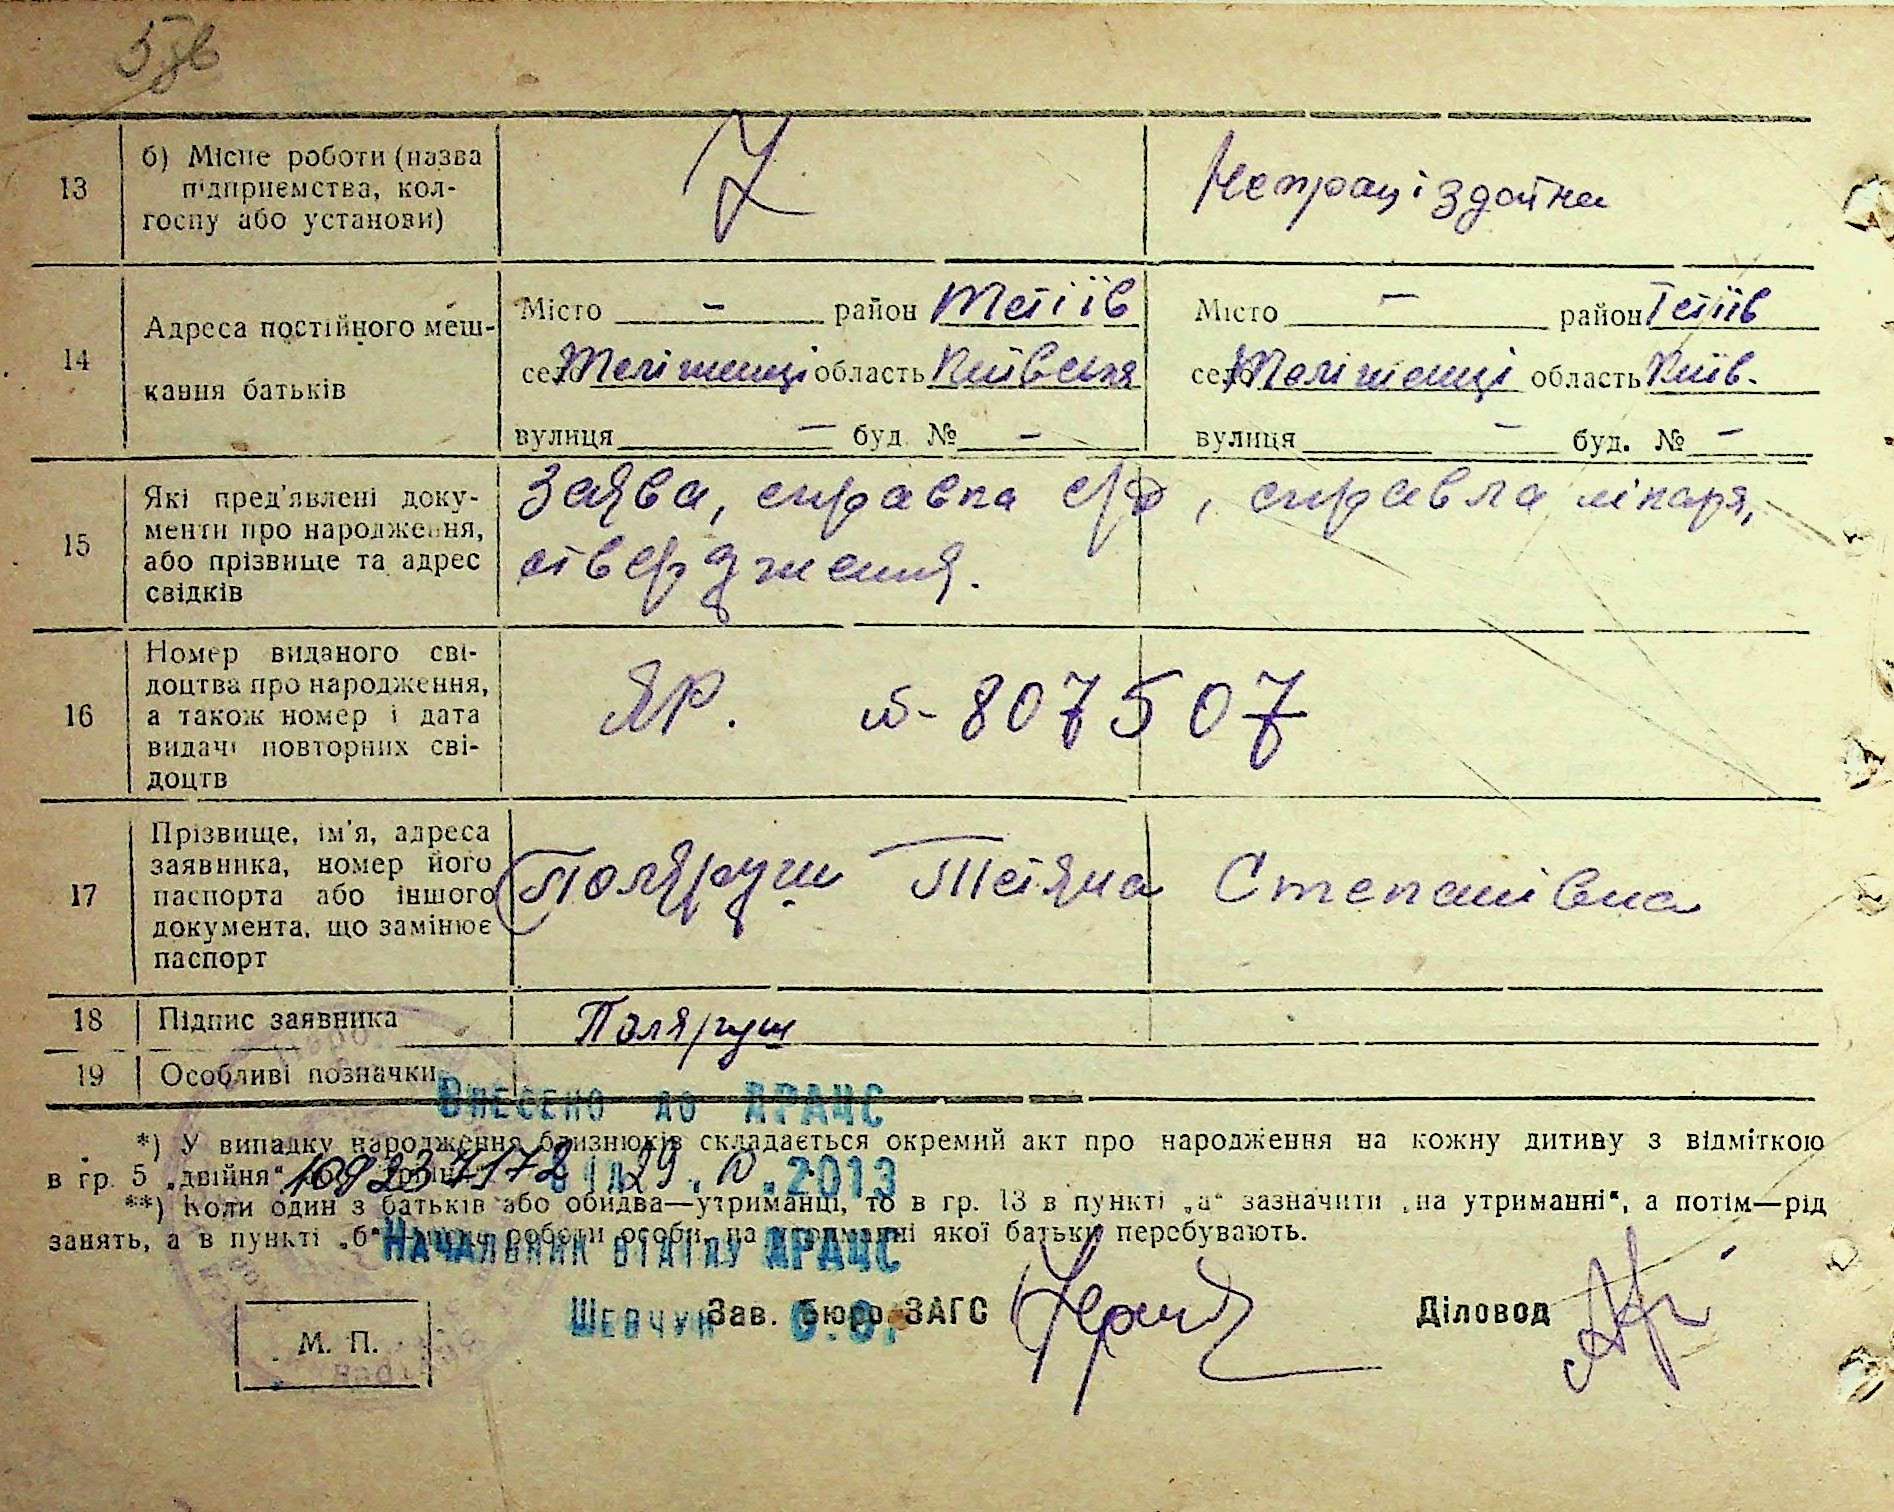 58в
13
б) Місце роботи (назва
підприємства, кол-
госпу або установи)
Z
Непраці здатна
14
Адреса постійного меш-
кання батьків
Місто — район Тетіїв
Місто — район Тетіїв
село Теліжинці область Київська
село Теліжинці область Київ.
вулиця — буд. № —
вулиця — буд. № —
15
Які пред'явлені доку-
менти про народження,
або прізвище та адрес
свідків
Заява, справка с/р, справка лікаря,
ствердження.
16
Номер виданого сві-
доцтва про народження,
а також номер і дата
видачі повторних сві-
доцтв
ЯР. № - 807507
17
Прізвище, ім'я, адреса
заявника, номер його
паспорта або іншого
документа, що замінює
паспорт
Поляруш Тетяна Степанівна
18
Підпис заявника
Поляруш
19
Особливі позначки
Внесено до ДРАЦС
*) У випадку народження близнюків складається окремий акт про народження на кожну дитину з відміткою
в гр. 5 „двійня“
від 29.10.2013
**) Коли один з батьків або обидва—утриманці, то в гр. 13 в пункті „а“ зазначити „на утриманні“, а потім—рід
занять, а в пункті „б“—місце роботи особи, на утриманні якої батьки перебувають.
Начальник відділу ДРАЦС
Шевчук
Зав. бюро ЗАГС
Діловод
М. П.